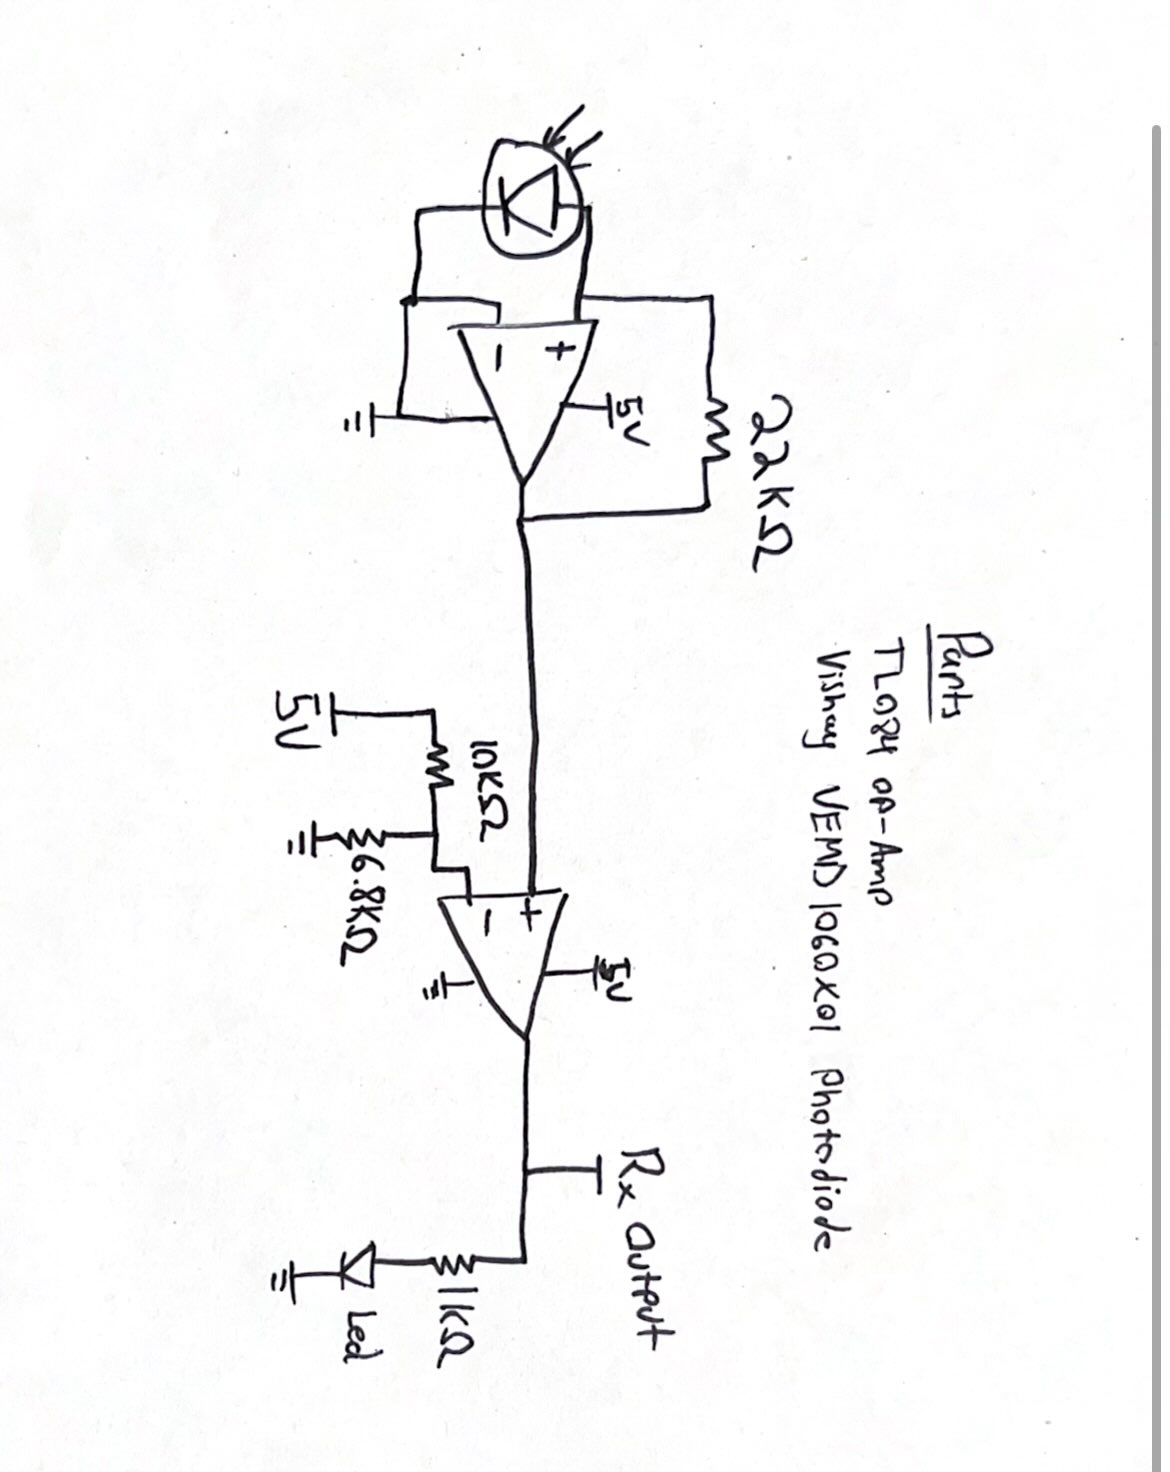 22kΩ
+
-
5V
Parts
TL084 op-Amp
Vishay VEMD1060X01 Photodiode
5V
10kΩ
6.8kΩ
+
-
5V
Rx Output
1kΩ
Led